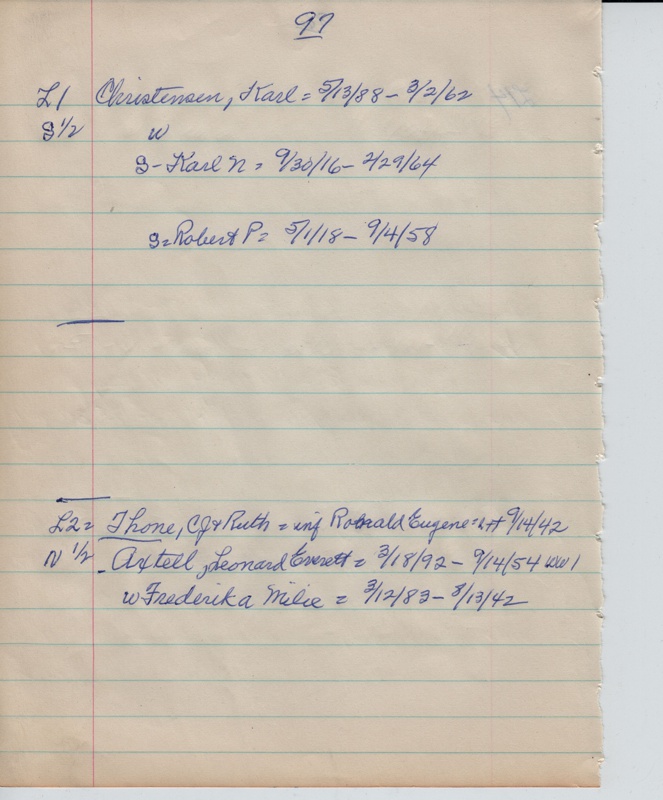 97
L1 Christensen, Karl = 5/13/88 - 3/2/62
S 1/2 w
S - Karl N = 9/30/16 - 2/29/64
S = Robert P = 5/1/18 - 9/4/58
L2 = Thone, CJ & Ruth = inf Ronald Eugene = 9/14/42
N 1/2 - Axtell, Leonard Everett = 3/18/92 - 9/14/54 WW1
w Frederika Milie = 3/12/83 - 8/13/42